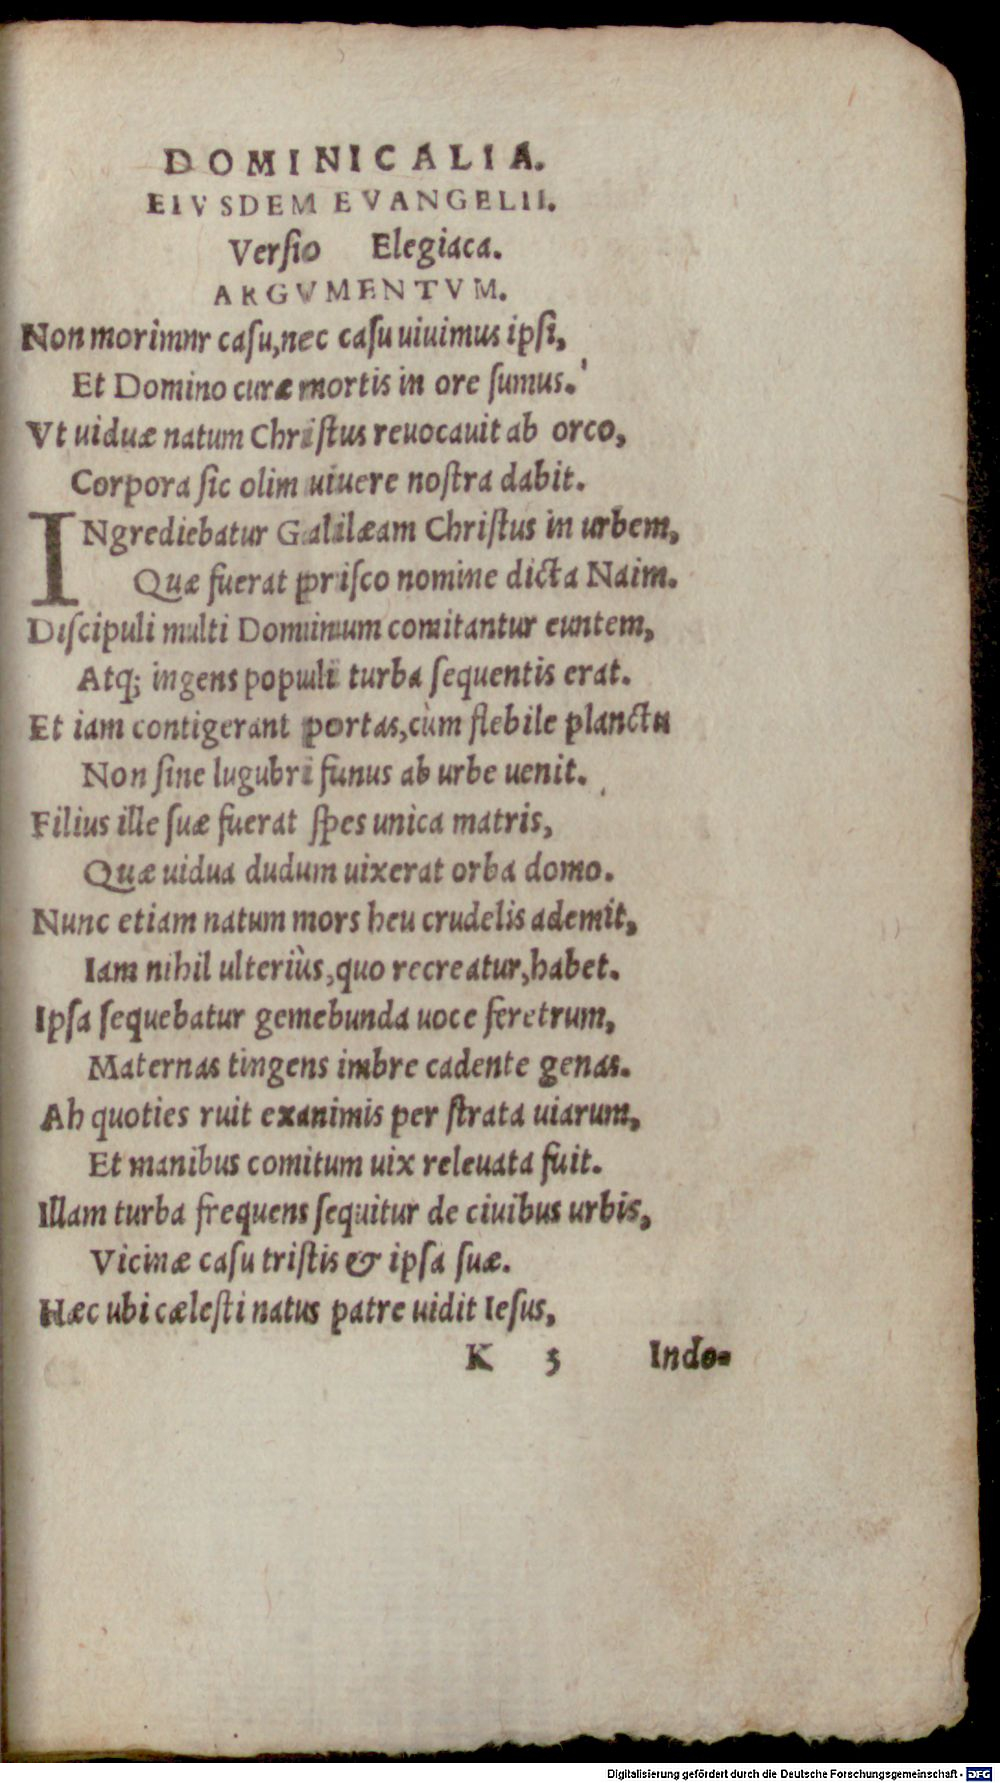 DOMINICALIA.
EIVSDEM EVANGELII.
Verſio Elegiaca.
ARGVMENTVM.
Non morimnr caſu, nec caſu uiuimus ipſi,
Et Domino curæ mortis in ore ſumus.
Vt uiduæ natum Chriſtus reuocauit ab orco,
Corpora ſic olim uiuere noſtra dabit.
INgrediebatur Galilæam Chriſtus in urbem,
Quæ fuerat priſco nomine dicta Naim.
Diſcipuli multi Dominum comitantur euntem,
Atq; ingens populi turba ſequentis erat.
Et iam contigerant portas, cùm flebile planctu
Non ſine lugubri funus ab urbe uenit.
Filius ille ſuæ fuerat ſpes unica matris,
Quæ uidua dudum uixerat orba domo.
Nunc etiam natum mors heu crudelis ademit,
Iam nihil ulteriùs, quo recreatur, habet.
Ipſa ſequebatur gemebunda uoce feretrum,
Maternas tingens imbre cadente genas.
Ah quoties ruit exanimis per ſtrata uiarum,
Et manibus comitum uix releuata fuit.
Illam turba frequens ſequitur de ciuibus urbis,
Vicinæ caſu triſtis & ipſa ſuæ.
Hæc ubi cæleſti natus patre uidit Ieſus,
K 3 Indo-
Digitalisierung gefördert durch die Deutsche Forschungsgemeinschaft - DFG